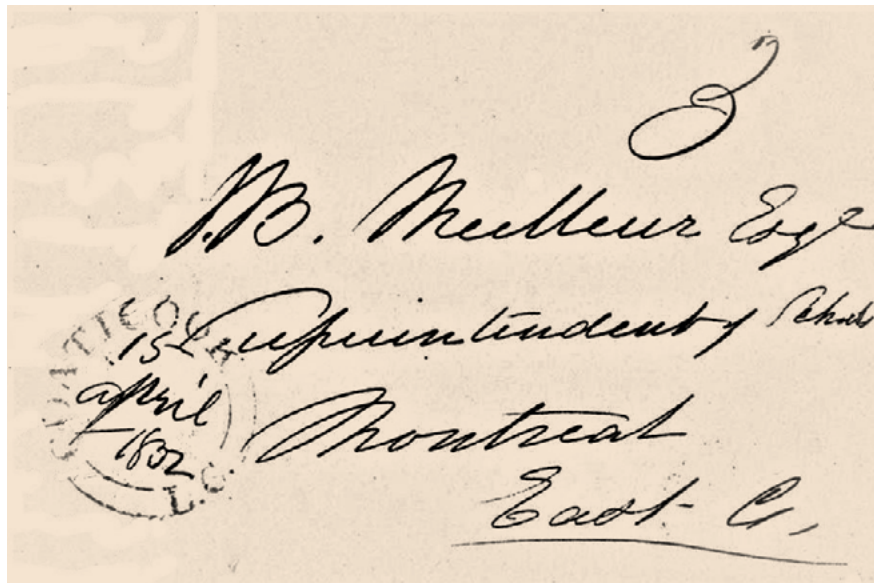 3
J.B. Meilleur Esqr
Superintendent of Schools
Montreal
East C.
COATICOOK
15
april
L.C.